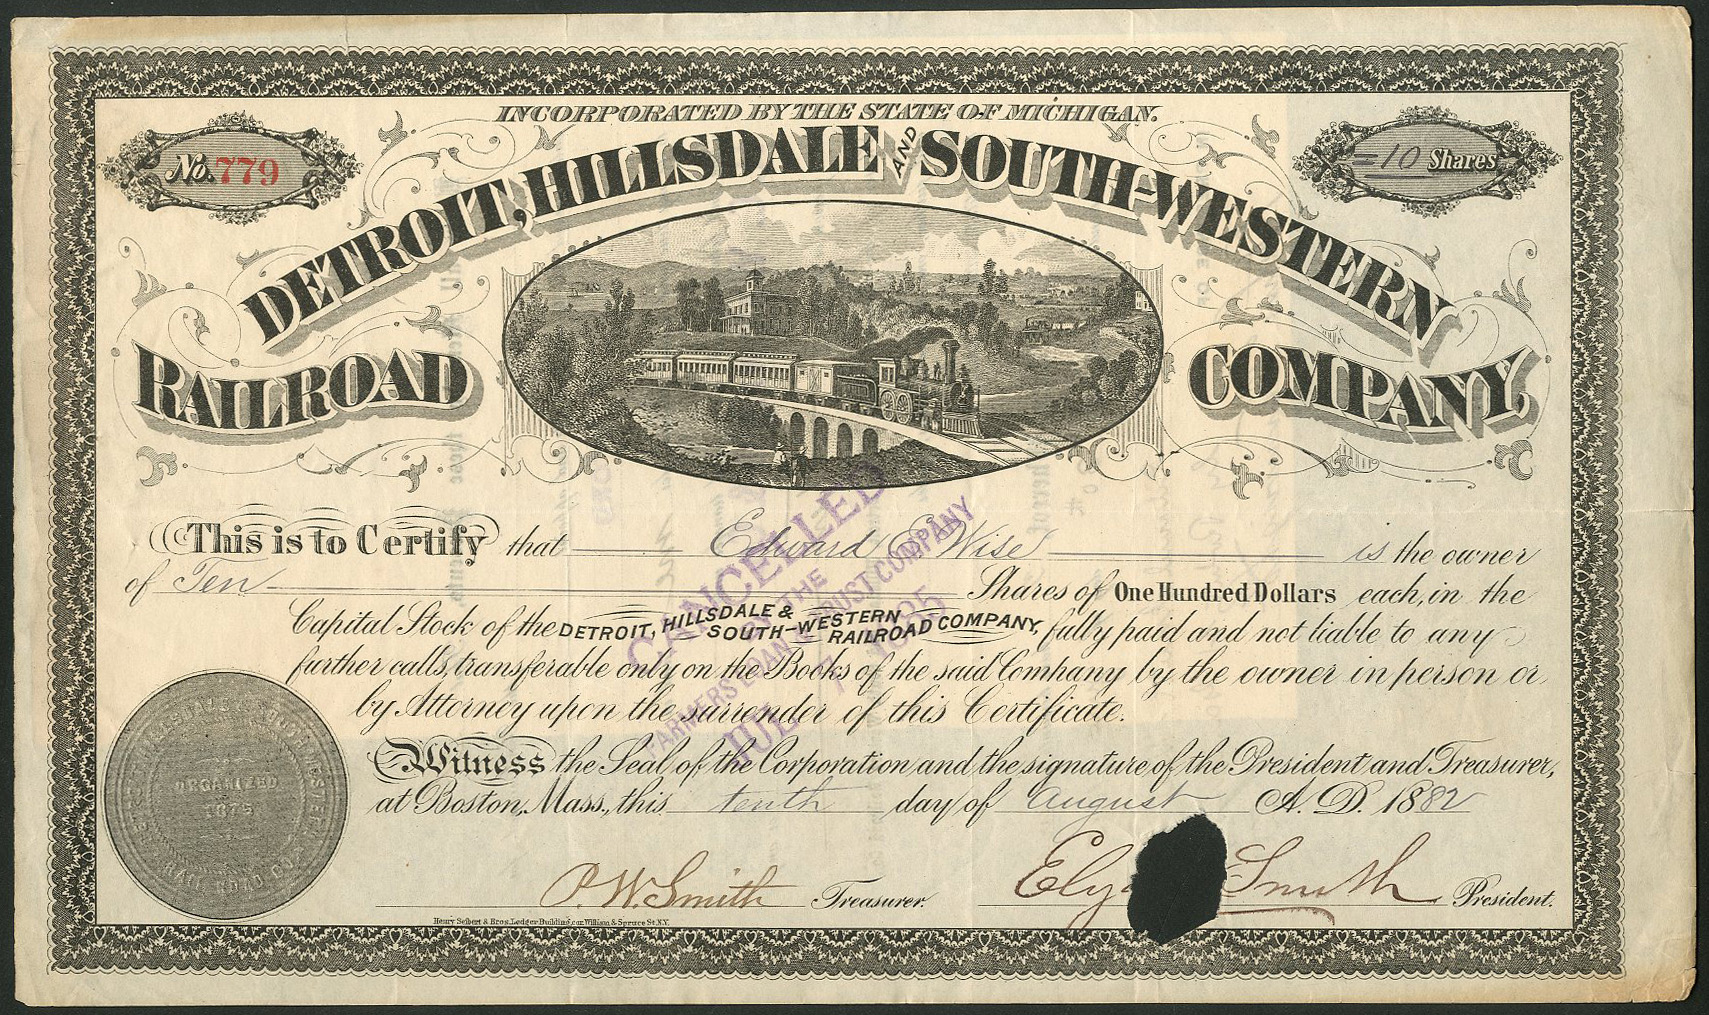 INCORPORATED BY THE STATE OF MICHIGAN.
No. 779
=10 Shares
DETROIT, HILLSDALE AND SOUTH-WESTERN
RAILROAD COMPANY,
This is to Certify that Edward C Wise is the owner
of Ten Shares of One Hundred Dollars each, in the
Capital Stock of the DETROIT, HILLSDALE & SOUTH-WESTERN RAILROAD COMPANY, fully paid and not liable to any
further calls, transferable only on the Books of the said Company by the owner in person or
by Attorney upon the surrender of this Certificate.
CANCELLED
BY THE
FARMERS LOAN & TRUST COMPANY
JUL 1885
Witness the Seal of the Corporation and the signature of the President and Treasurer,
at Boston, Mass., this tenth day of August A. D. 1882
ORGANIZED
1875
RAIL ROAD CO.
P. W. Smith Treasurer. Smith President.
Henry Seibert & Bros. Ledger Building, cor. William & Spruce St. N.Y.